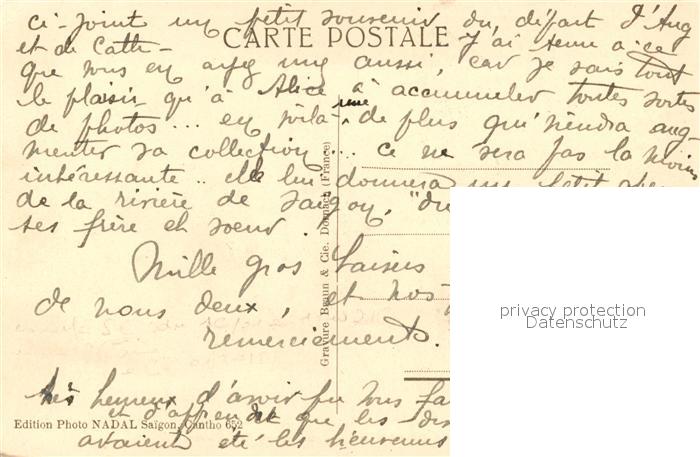 ci-joint un petit souvenir du départ d'Aug
et de Cath-
CARTE POSTALE
J'ai tenu à ce
que vous en ayez un aussi, car je sais tout
le plaisir qu'à Alice à accumuler toutes sortes
de photos... en voilà une de plus qui viendra aug-
menter sa collection... ce ne sera pas la moins
intéressante.. elle lui donnera un petit
de la rivière de Saïgon, "du
ses frère et soeur.
Mille gros baisers
de nous deux, et nos
remerciements.
Gravure Braun & Cie. Dornach (France)
très heureux d'avoir pu vous
et d'apprendre que les
Edition Photo NADAL Saïgon, Cantho 652
avaient été les bienvenus
privacy protection
Datenschutz